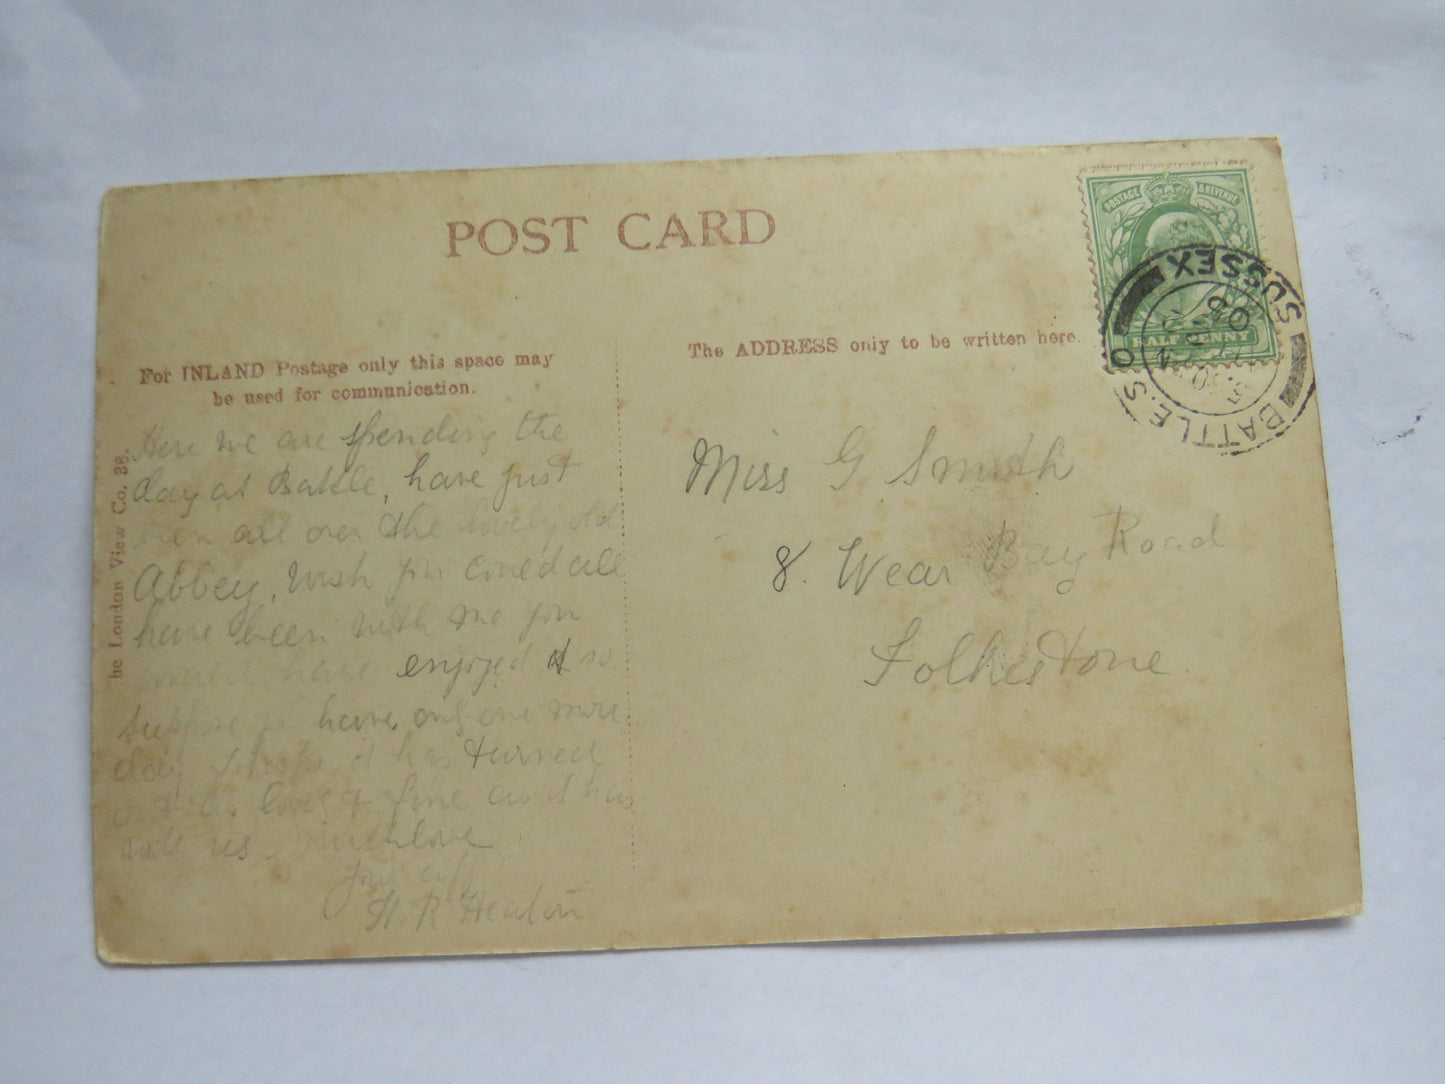 POST CARD
POSTAGE & REVENUE
HALFPENNY
BATTLE.S.O. SUSSEX
For INLAND Postage only this space may
be used for communication.
The ADDRESS only to be written here.
he London View Co.
Here we are spending the
day at Battle, have just
been all over the lovely old
Abbey, wish you could all
have been with me you
would have enjoyed it so
suppose you have only one more
day I hope it has turned
out as lovely & fine as it has
with us. Much love
Your aff
H. R Heaton
Miss G Smith
8. Wear Bay Road
Folkestone